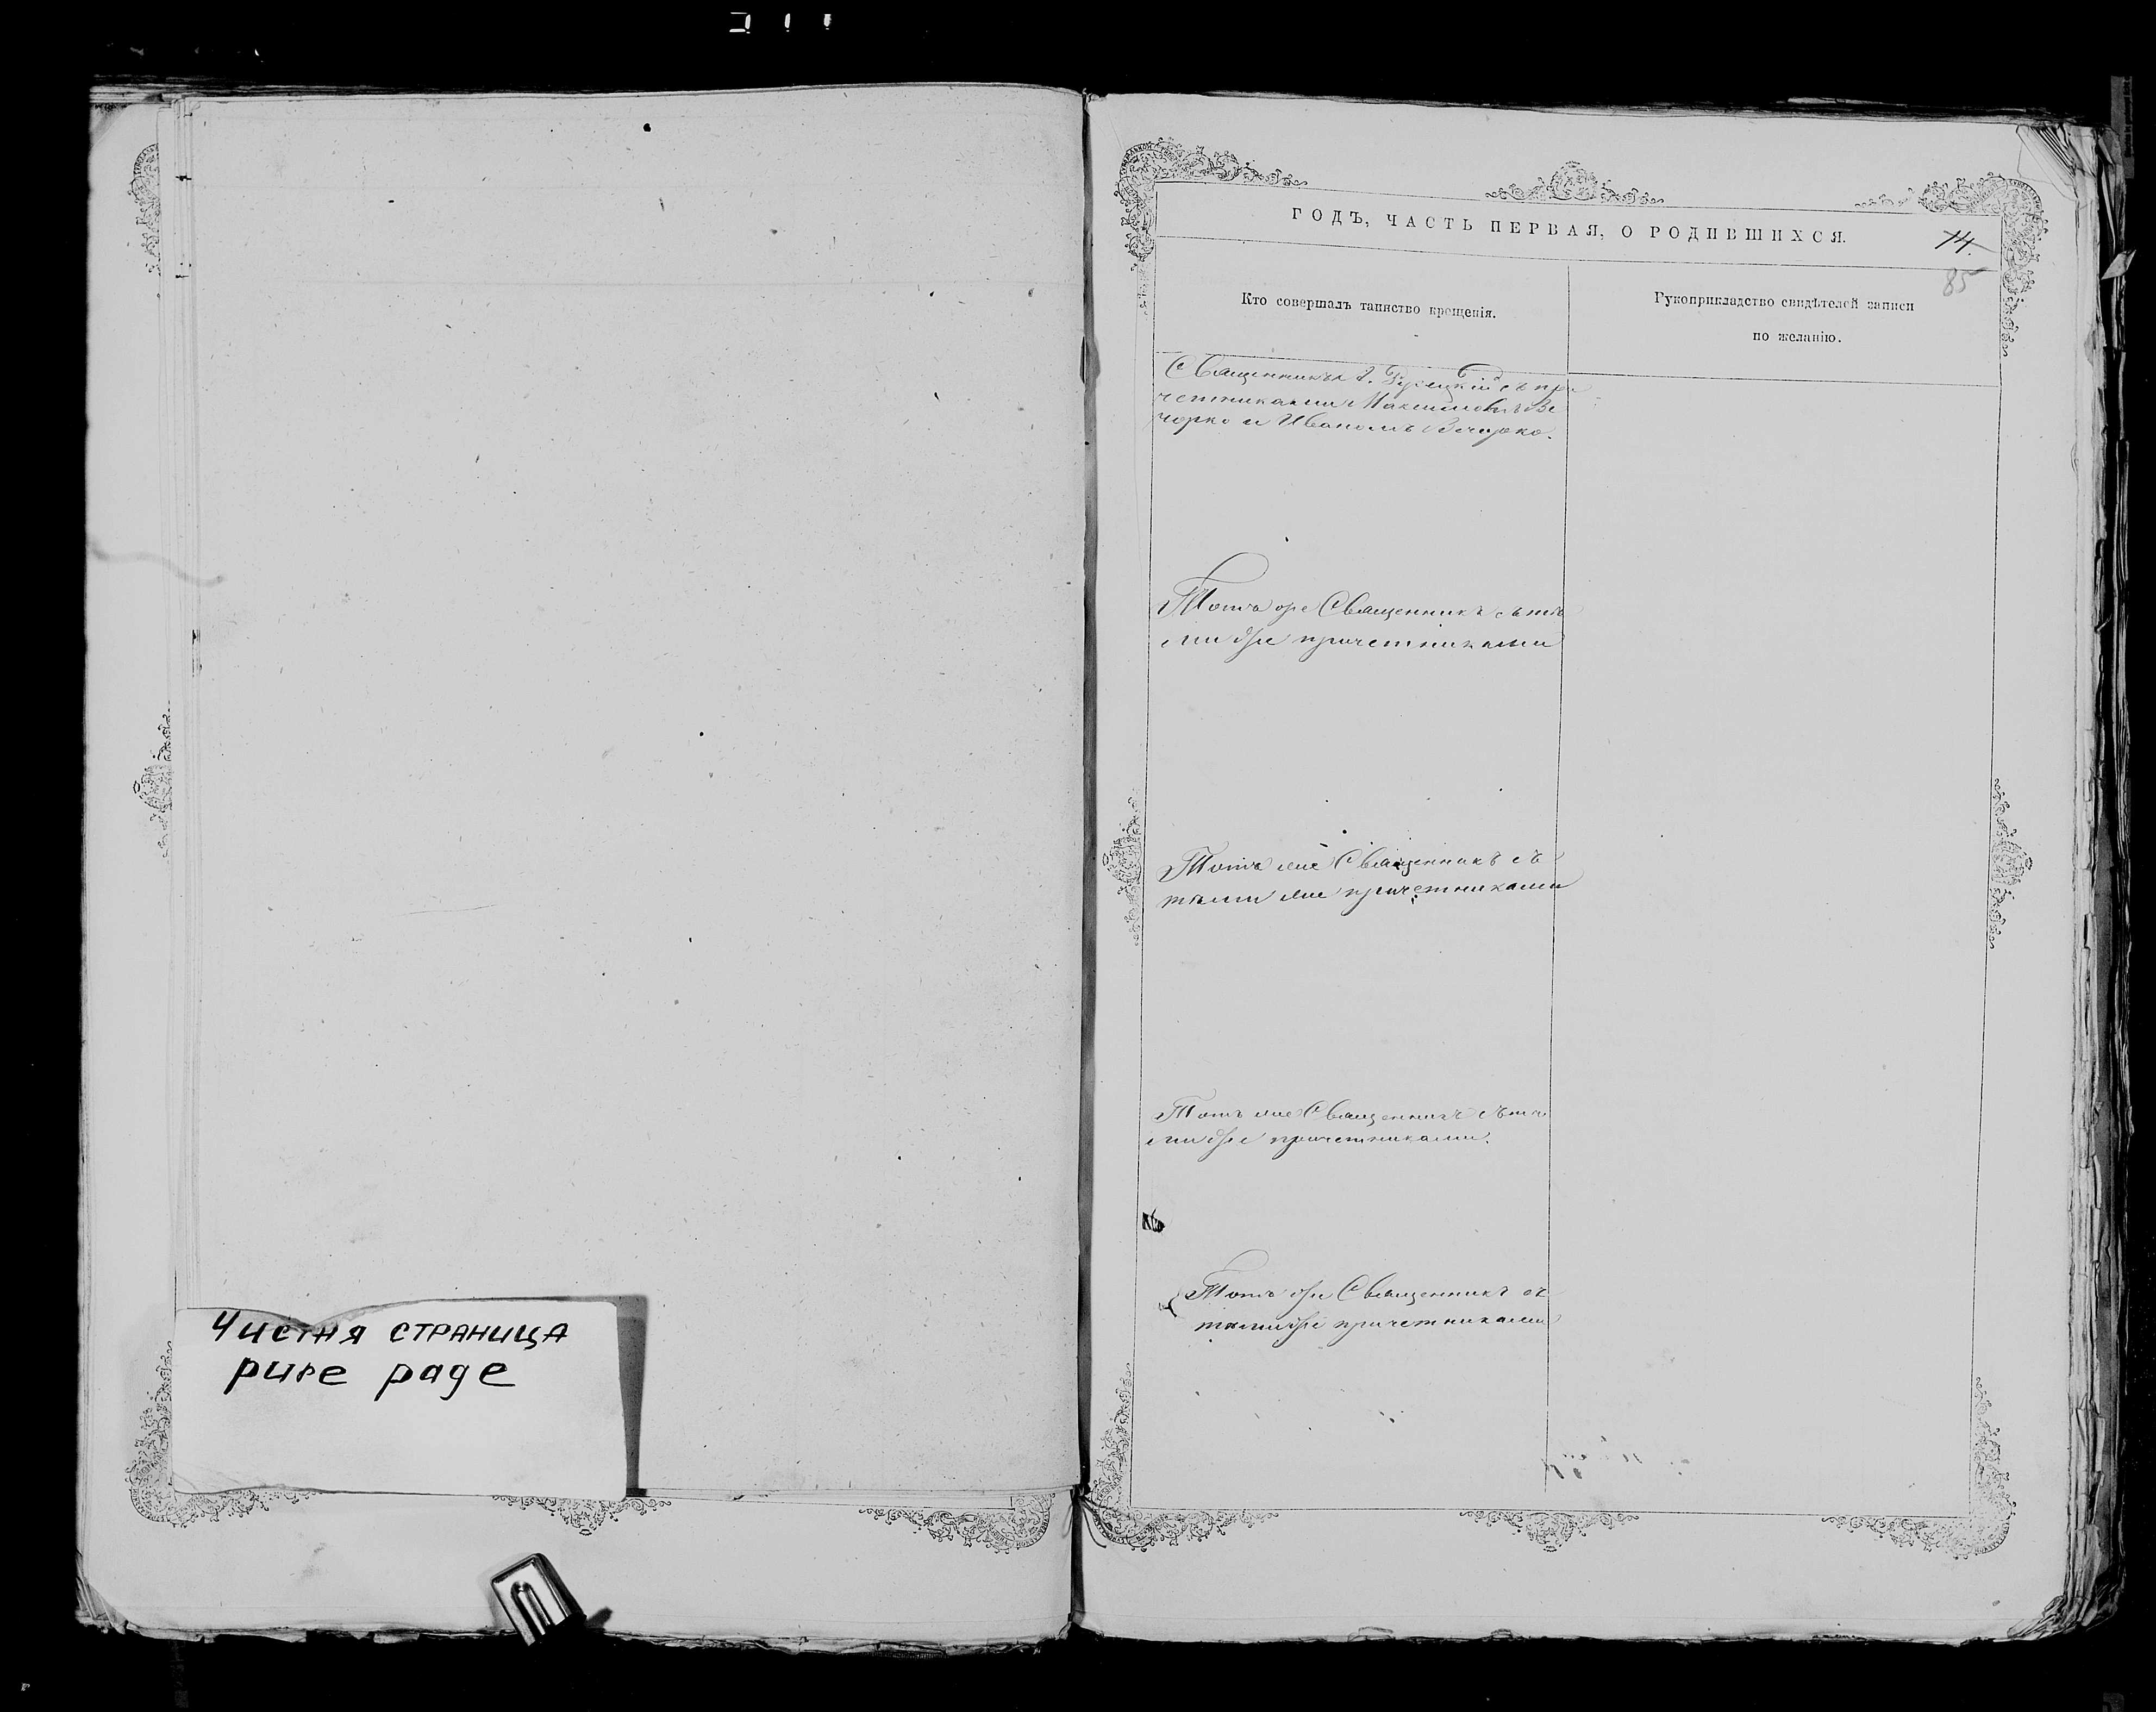 Чистая страница
pure page
ГОДЪ, ЧАСТЬ ПЕРВАЯ, О РОДИВШИХСЯ.
14.
85
Кто совершалъ таинство крещенія.
Рукоприкладство свидѣтелей записи
по желанію.
Священникъ съ при
четниками Ве
чорко и Иваномъ Вечорко.
Тотъ же Священникъ съ тѣ
ми же причетниками
Тотъ же Священникъ съ
тѣми же причетниками
Тотъ же Священникъ съ тѣ
ми же причетниками.
Тотъ же Священникъ съ
тѣми же причетниками